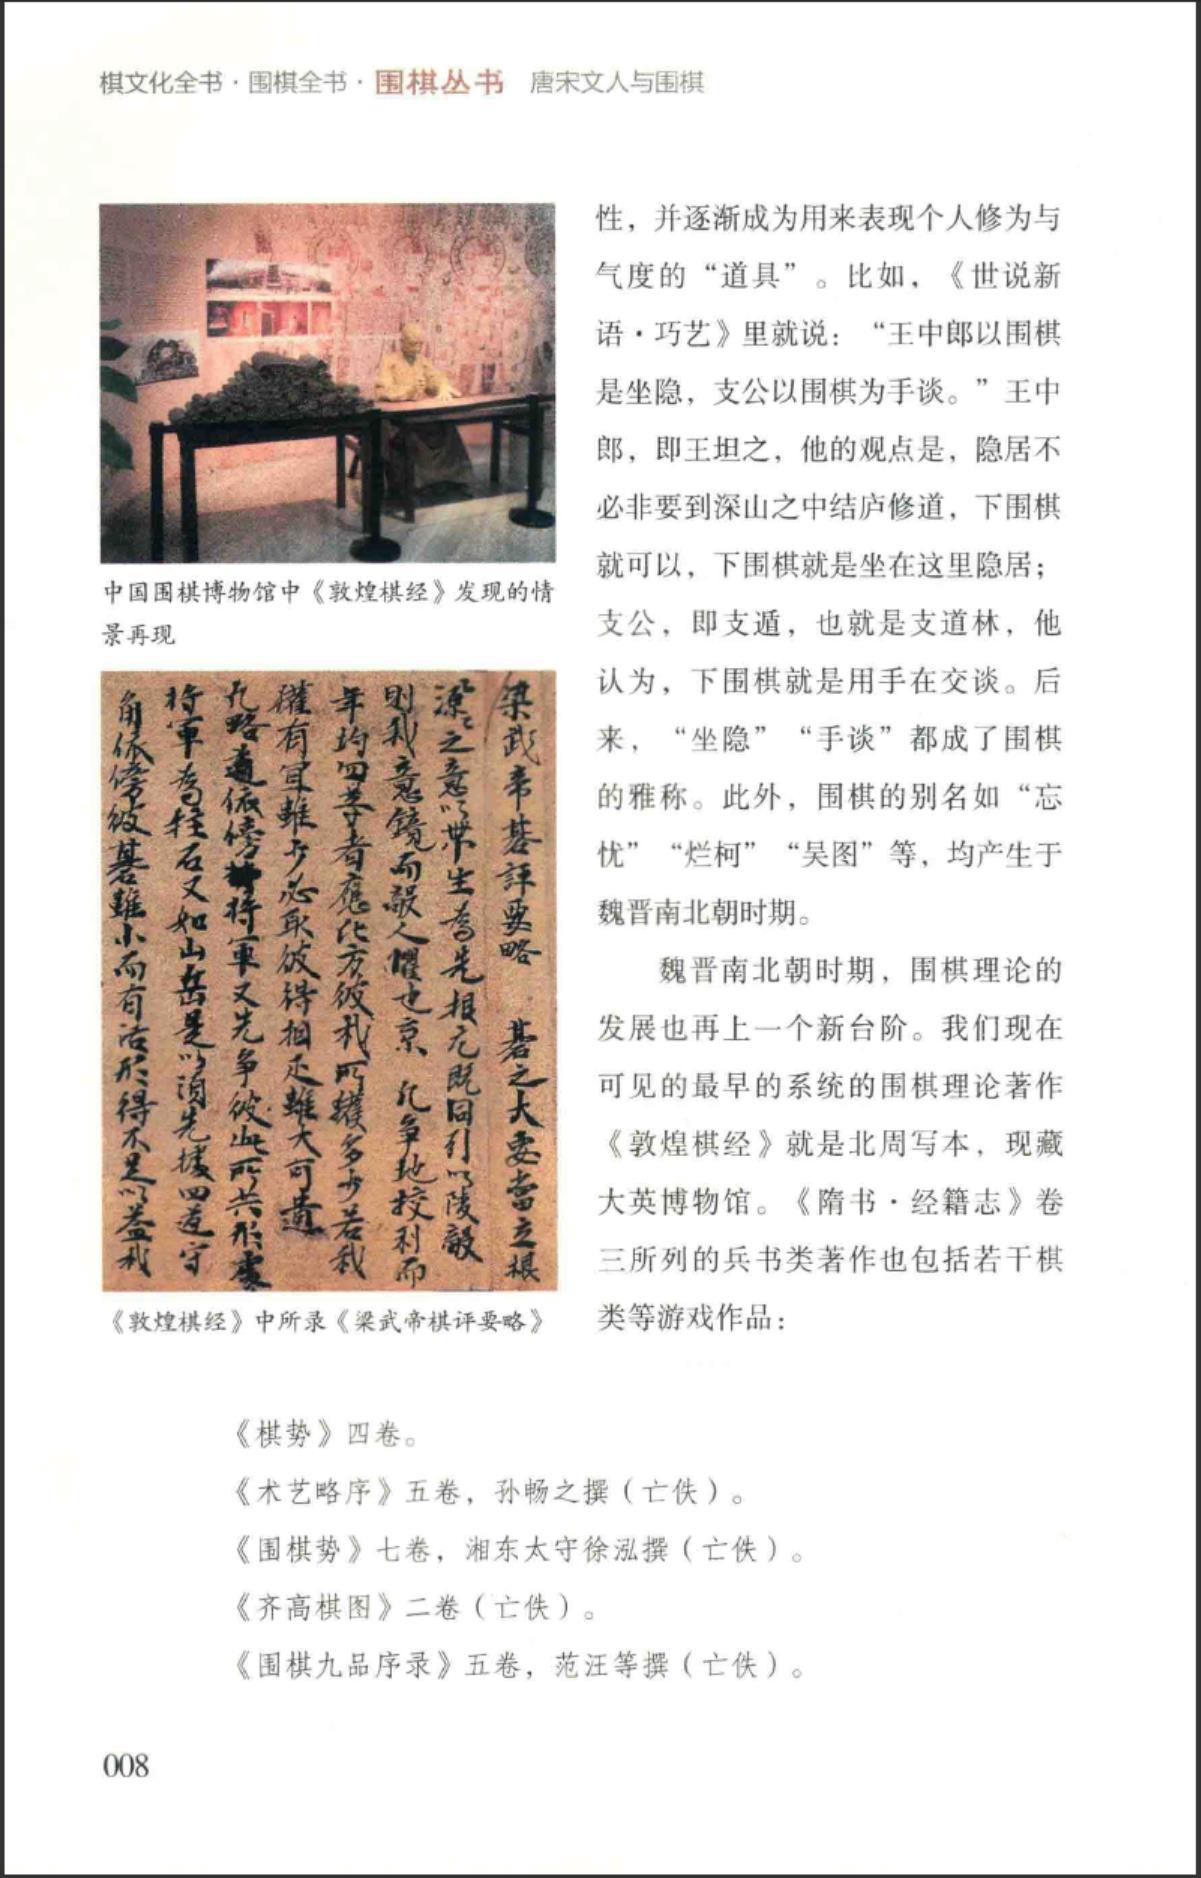 棋文化全书·围棋全书·围棋丛书 唐宋文人与围棋
中国围棋博物馆中《敦煌棋经》发现的情
景再现
梁武帝棊評要略 棊之大要當立根
源之意以帶生為先根元既固引以陵敵
則我意鏡而敵人懼也 凡爭地挍利而
年均四者應比方彼我所獲多少若我
獲有冝雖少必取彼得相匹雖大可遺
凡略道依傍將軍又先爭彼此所共形處
將軍為柱石又如山岳是以須先據四道守
角依傍彼棊雖小而有活形得不足以益我
《敦煌棋经》中所录《梁武帝棋评要略》
性，并逐渐成为用来表现个人修为与
气度的“道具”。比如，《世说新
语·巧艺》里就说：“王中郎以围棋
是坐隐，支公以围棋为手谈。”王中
郎，即王坦之，他的观点是，隐居不
必非要到深山之中结庐修道，下围棋
就可以，下围棋就是坐在这里隐居；
支公，即支遁，也就是支道林，他
认为，下围棋就是用手在交谈。后
来，“坐隐”“手谈”都成了围棋
的雅称。此外，围棋的别名如“忘
忧”“烂柯”“吴图”等，均产生于
魏晋南北朝时期。
魏晋南北朝时期，围棋理论的
发展也再上一个新台阶。我们现在
可见的最早的系统的围棋理论著作
《敦煌棋经》就是北周写本，现藏
大英博物馆。《隋书·经籍志》卷
三所列的兵书类著作也包括若干棋
类等游戏作品：
《棋势》四卷。
《术艺略序》五卷，孙畅之撰（亡佚）。
《围棋势》七卷，湘东太守徐泓撰（亡佚）。
《齐高棋图》二卷（亡佚）。
《围棋九品序录》五卷，范汪等撰（亡佚）。
008